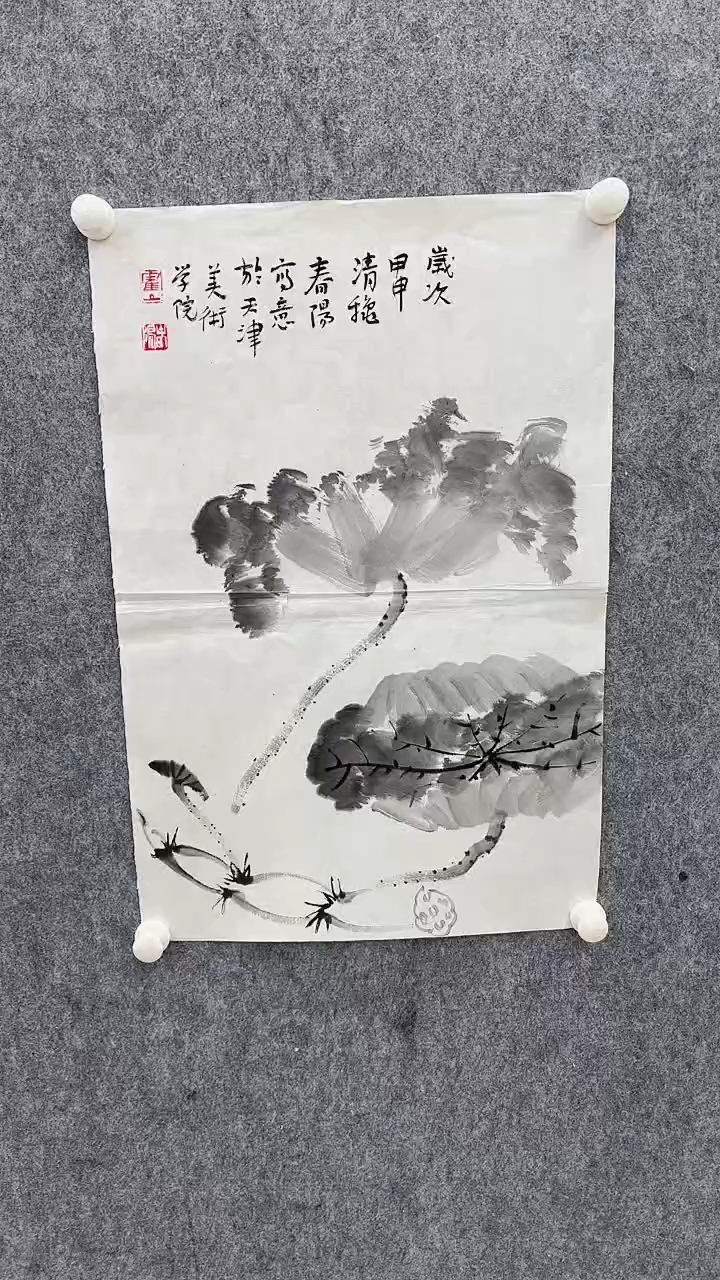 歲次
甲申
清龝
春陽
寫意
於天津
美術
学院